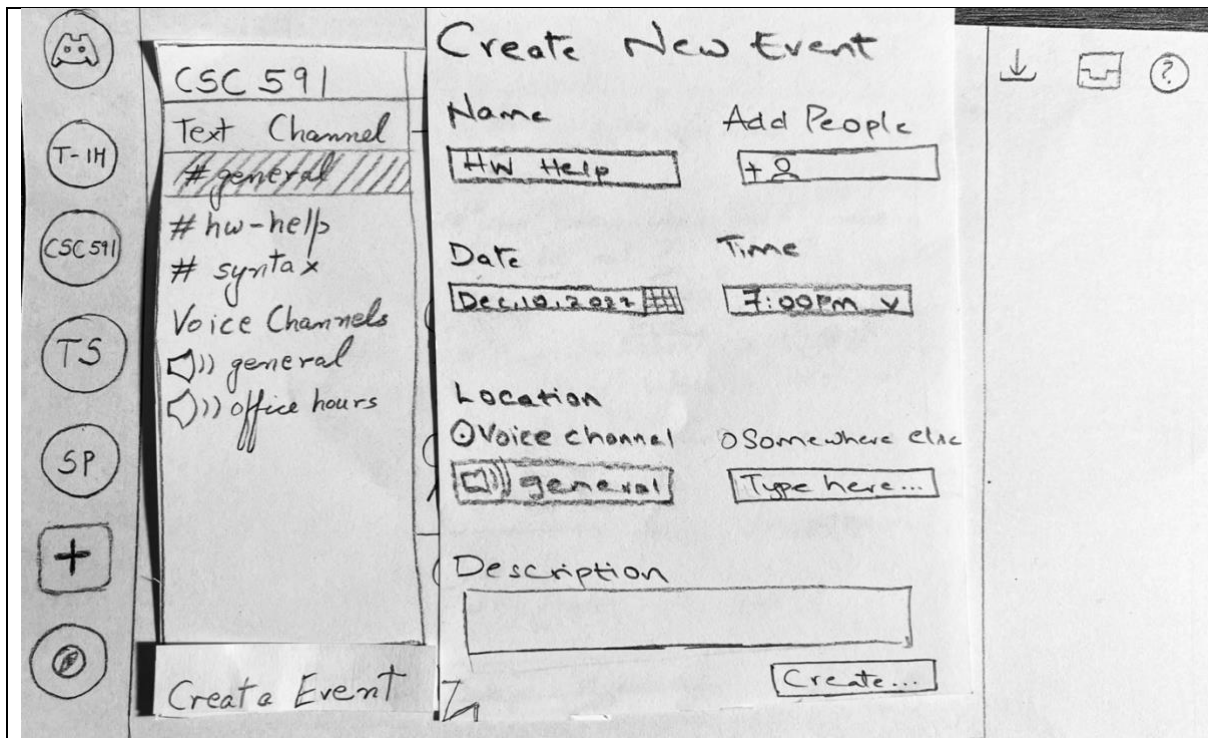 T-IH
CSC 591
TS
SP
+
CSC 591
Text Channel
# general
# hw-help
# syntax
Voice Channels
general
office hours
Creat a Event
Create New Event
Name
Add People
HW Help
+
Date
Time
Dec,10,2022
7:00PM v
Location
Voice channel
Somewhere else
general
Type here...
Description
Create...
?